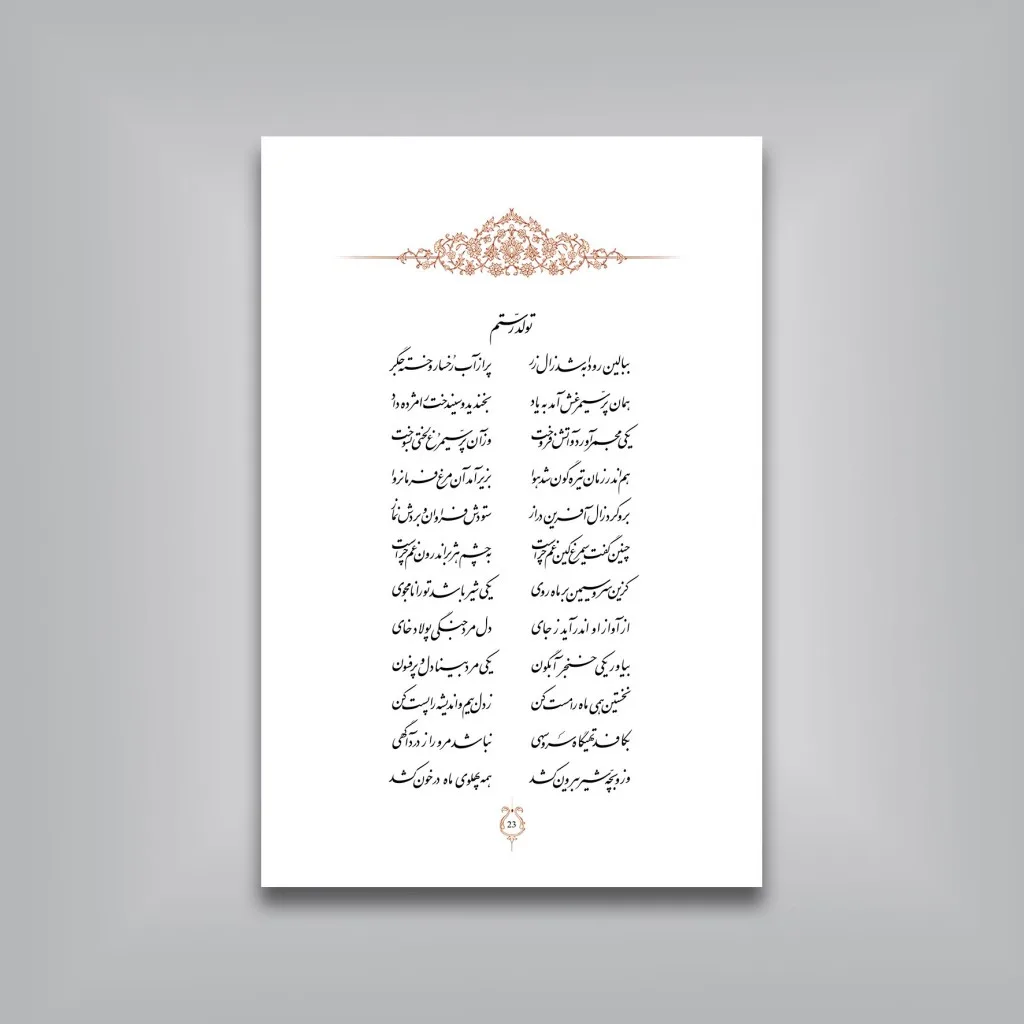 تولد رستم
ببالین رودابه شد زال زر پر از آب رخسار و خسته جگر
همان پرّ سیمرغش آمد به یاد بخندید و سیندخت را مژده داد
یکی مجمر آورد و آتش فروخت وز آن پرّ سیمرغ لختی بسوخت
هم اندر زمان تیره گون شد هوا بزیر آمد آن مرغ فرمانروا
برو کرد زال آفرین دراز ستودش فراوان و بردش نماز
چنین گفت سیمرغ کین غم چراست به چشم هژبر اندرون غم چراست
کزین سرو سیمین بر ماه روی یکی شیر باشد تو را نامجوی
از آواز او اندر آید ز جای دل مرد جنگی پولاد خای
بیاور یکی خنجر آبگون یکی مرد بینا دل و پر فنون
نخستین بمی ماه را مست کن ز دل بیم و اندیشه را پست کن
بکافد تهیگاه سرو سهی نباشد مرو را ز درد آگهی
وزو بچّه شیر بیرون کشد همه پهلوی ماه در خون کشد
23